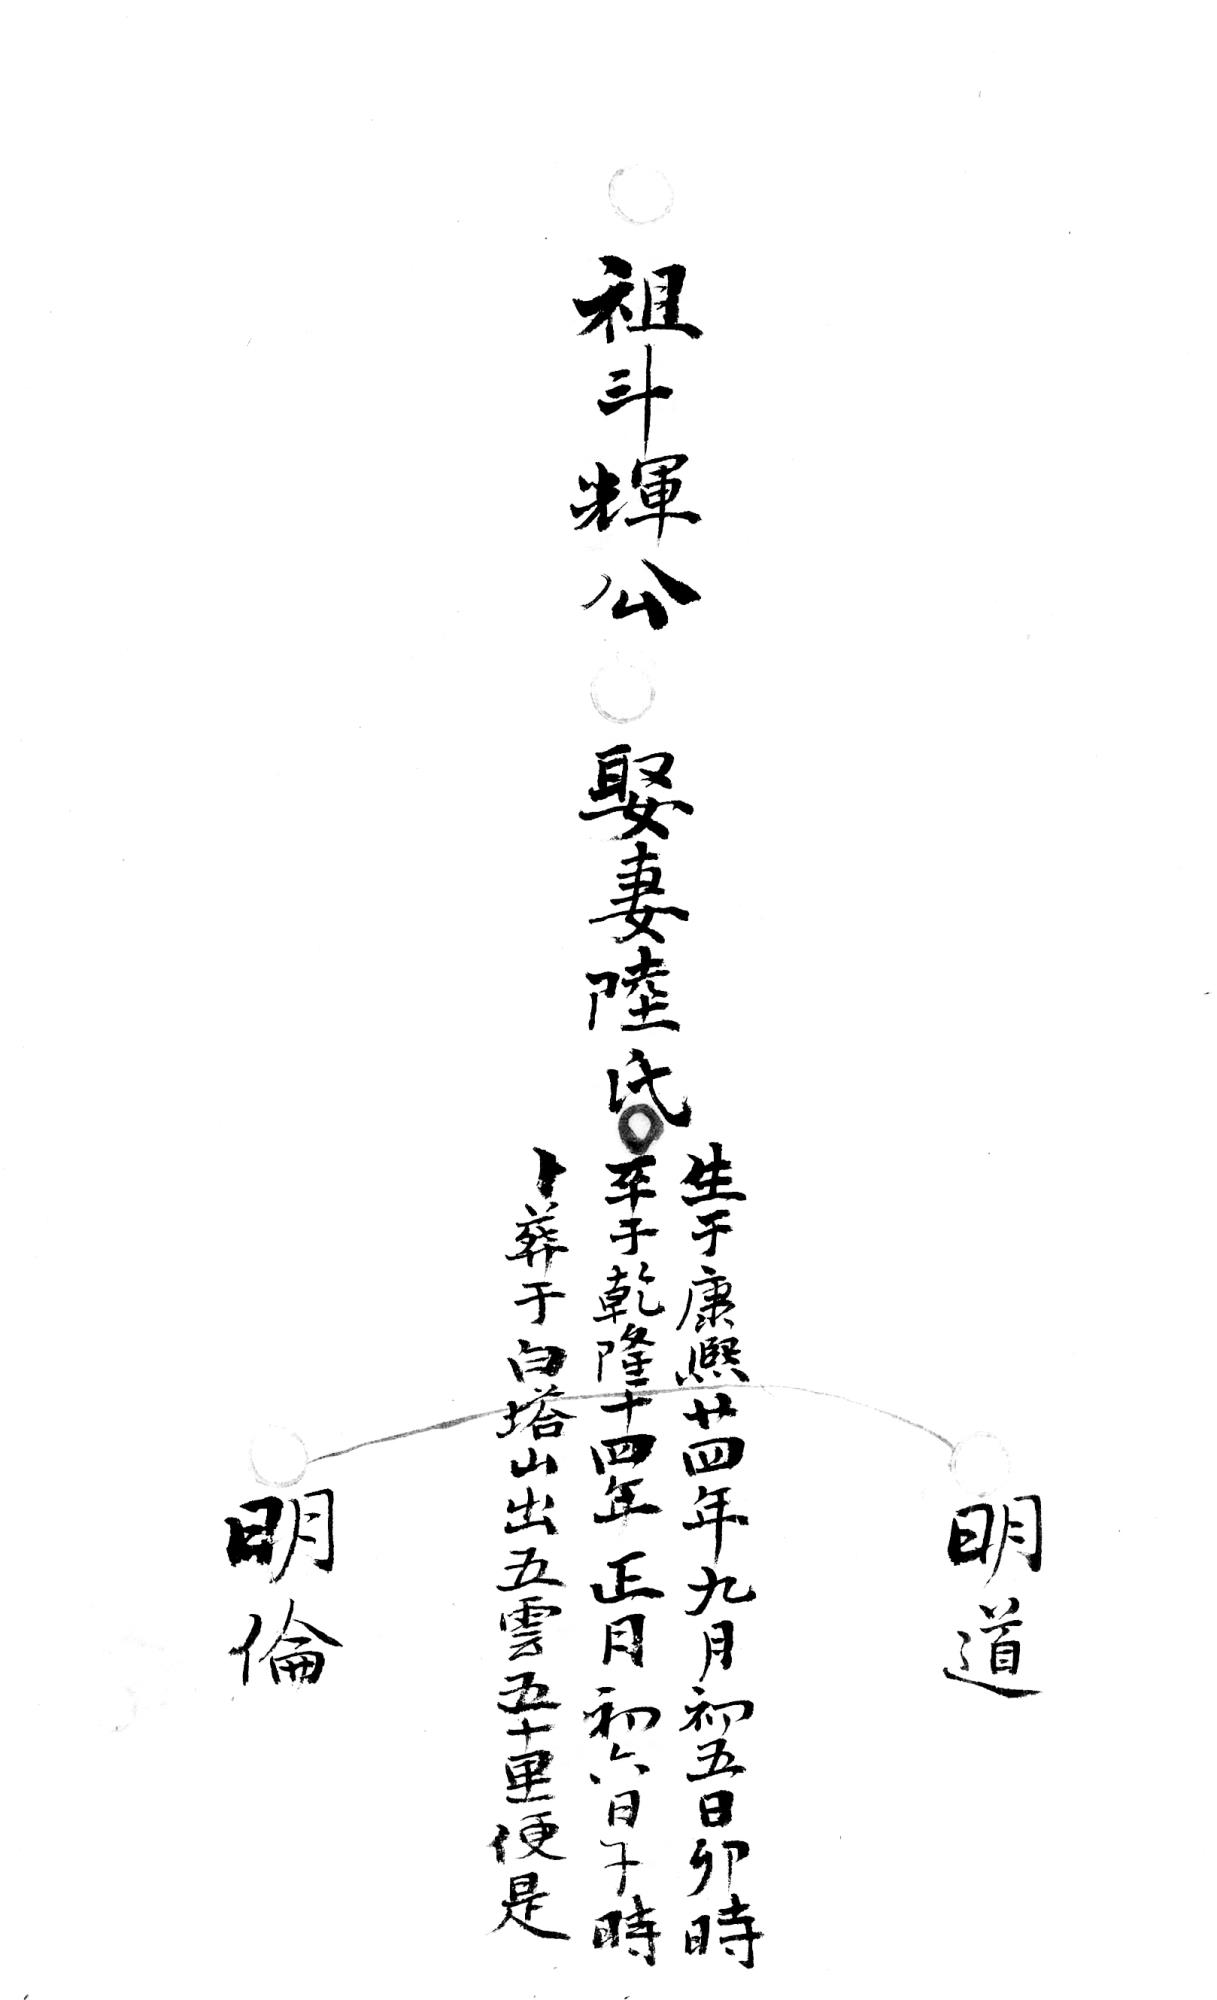 祖斗輝公
娶妻陸氏
生于康熈廿四年九月初五日卯時
卒于乾隆十四年正月初六日午時
卜葬于白塔山出五雲五十里便是
明道
明倫